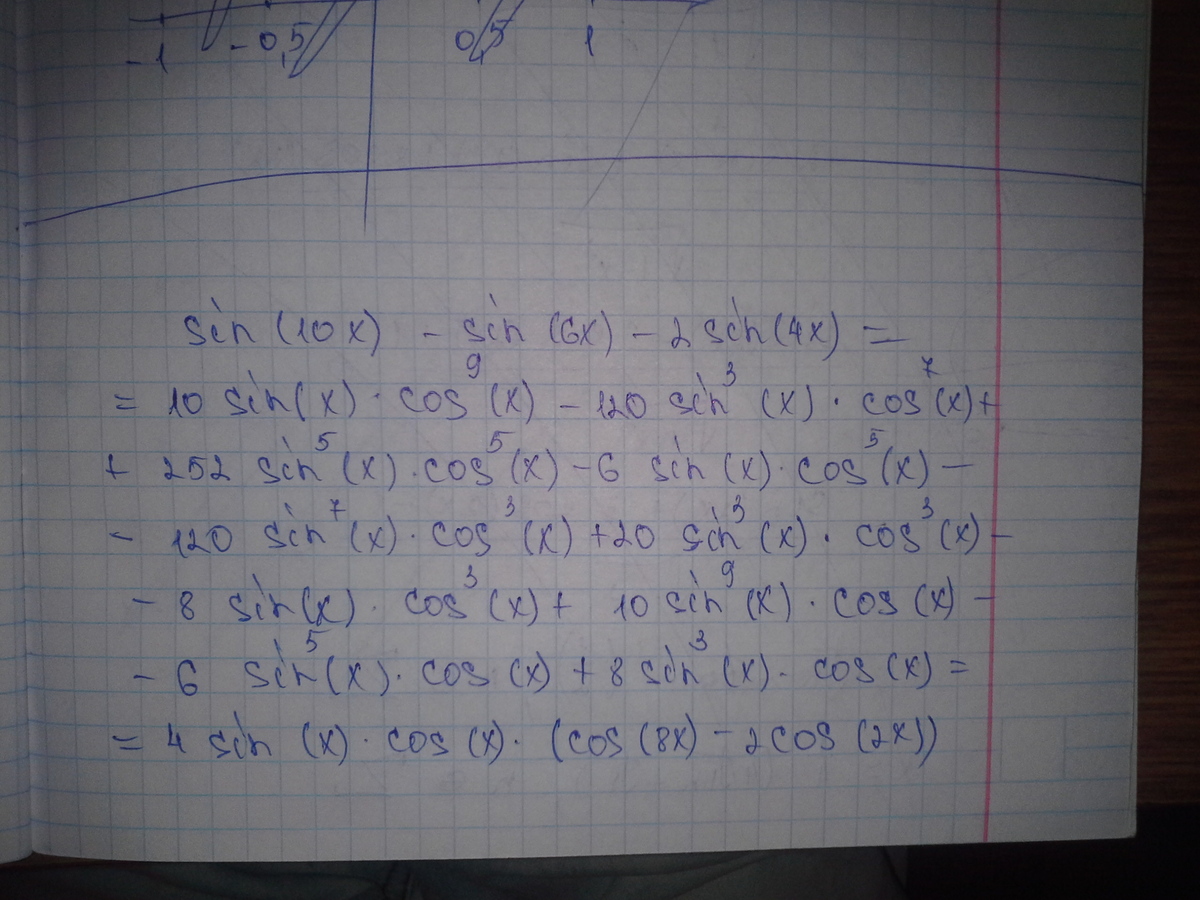 -1 -0,5 0,5 1
sin (10x) - sin (6x) - 2 sin (4x) =
= 10 sin(x) · cos⁹(x) - 120 sin³(x) · cos⁷(x) +
+ 252 sin⁵(x) · cos⁵(x) - 6 sin(x) · cos⁵(x) -
- 120 sin⁷(x) · cos³(x) + 20 sin³(x) · cos³(x) -
- 8 sin(x) · cos³(x) + 10 sin⁹(x) · cos(x) -
- 6 sin⁵(x) · cos(x) + 8 sin³(x) · cos(x) =
= 4 sin (x) · cos (x) · (cos (8x) - 2 cos (2x))